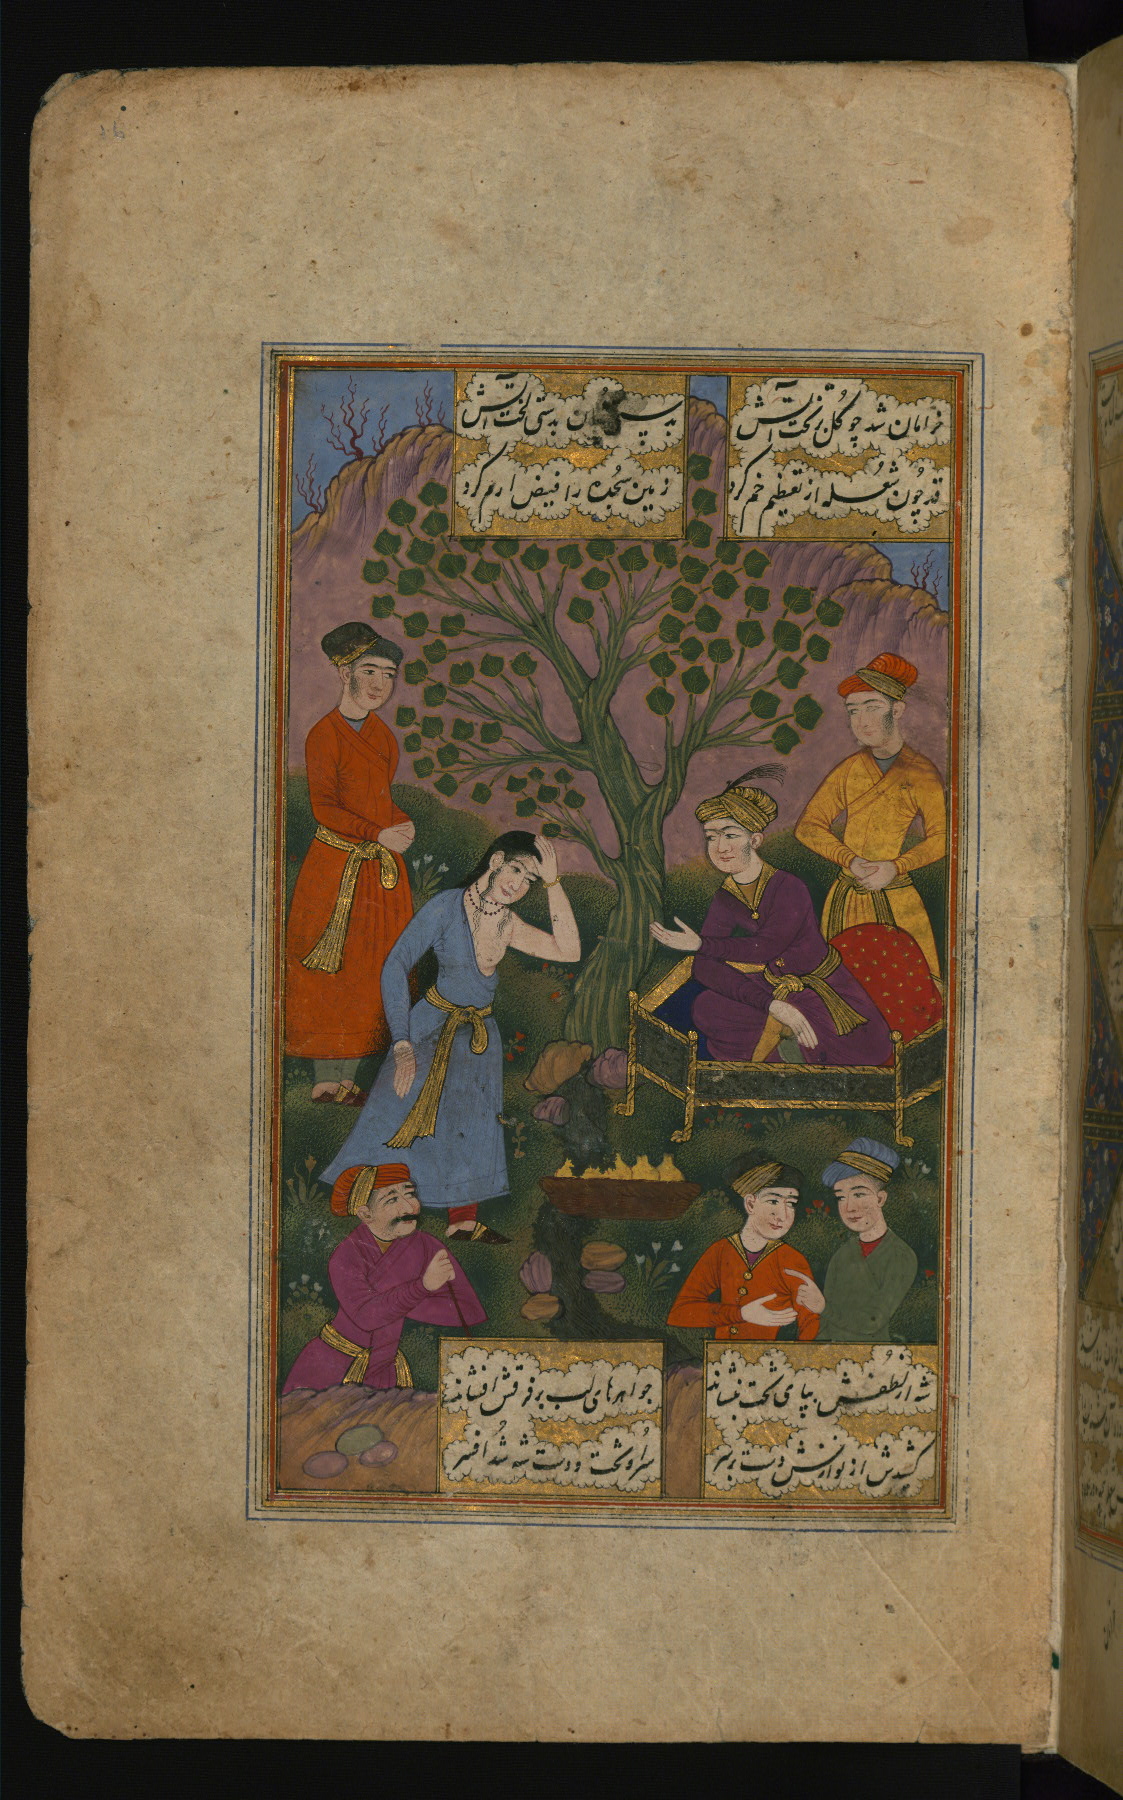 خرامان شد چو گل بر تخت آتش
بدستی لخت آتش
قد چون شعله از تعظیم خم کرد
زمین سجده را فیض ارم کرد
شه از لطفش بپای تخت بنشاند
جواهرهای لب بر فرقش افشاند
کشیدش از نوازش دست بر سر
سر او تخت و دست شه شد افسر